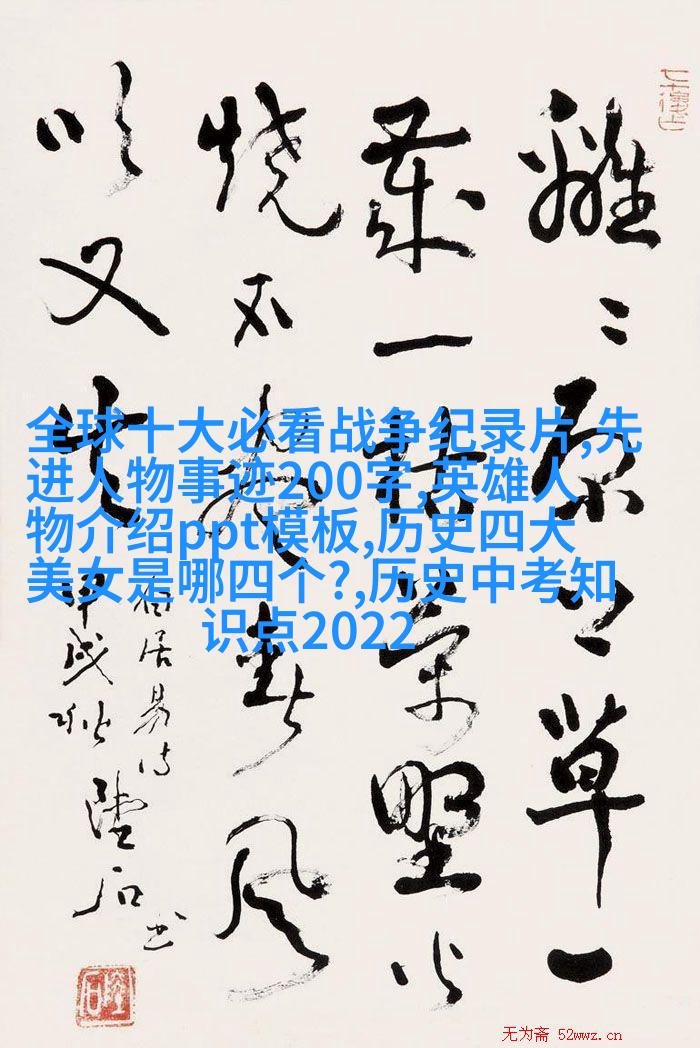 離〻原上草一
歲一枯荣野火
烧不盡春風
吹又生
白居易诗
甲戌秋 陸石书
全球十大必看战争纪录片,先
进人物事迹200字,英雄人
物介绍ppt模板,历史四大
美女是哪四个?,历史中考知
识点2022
无为斋 52wwz.cn